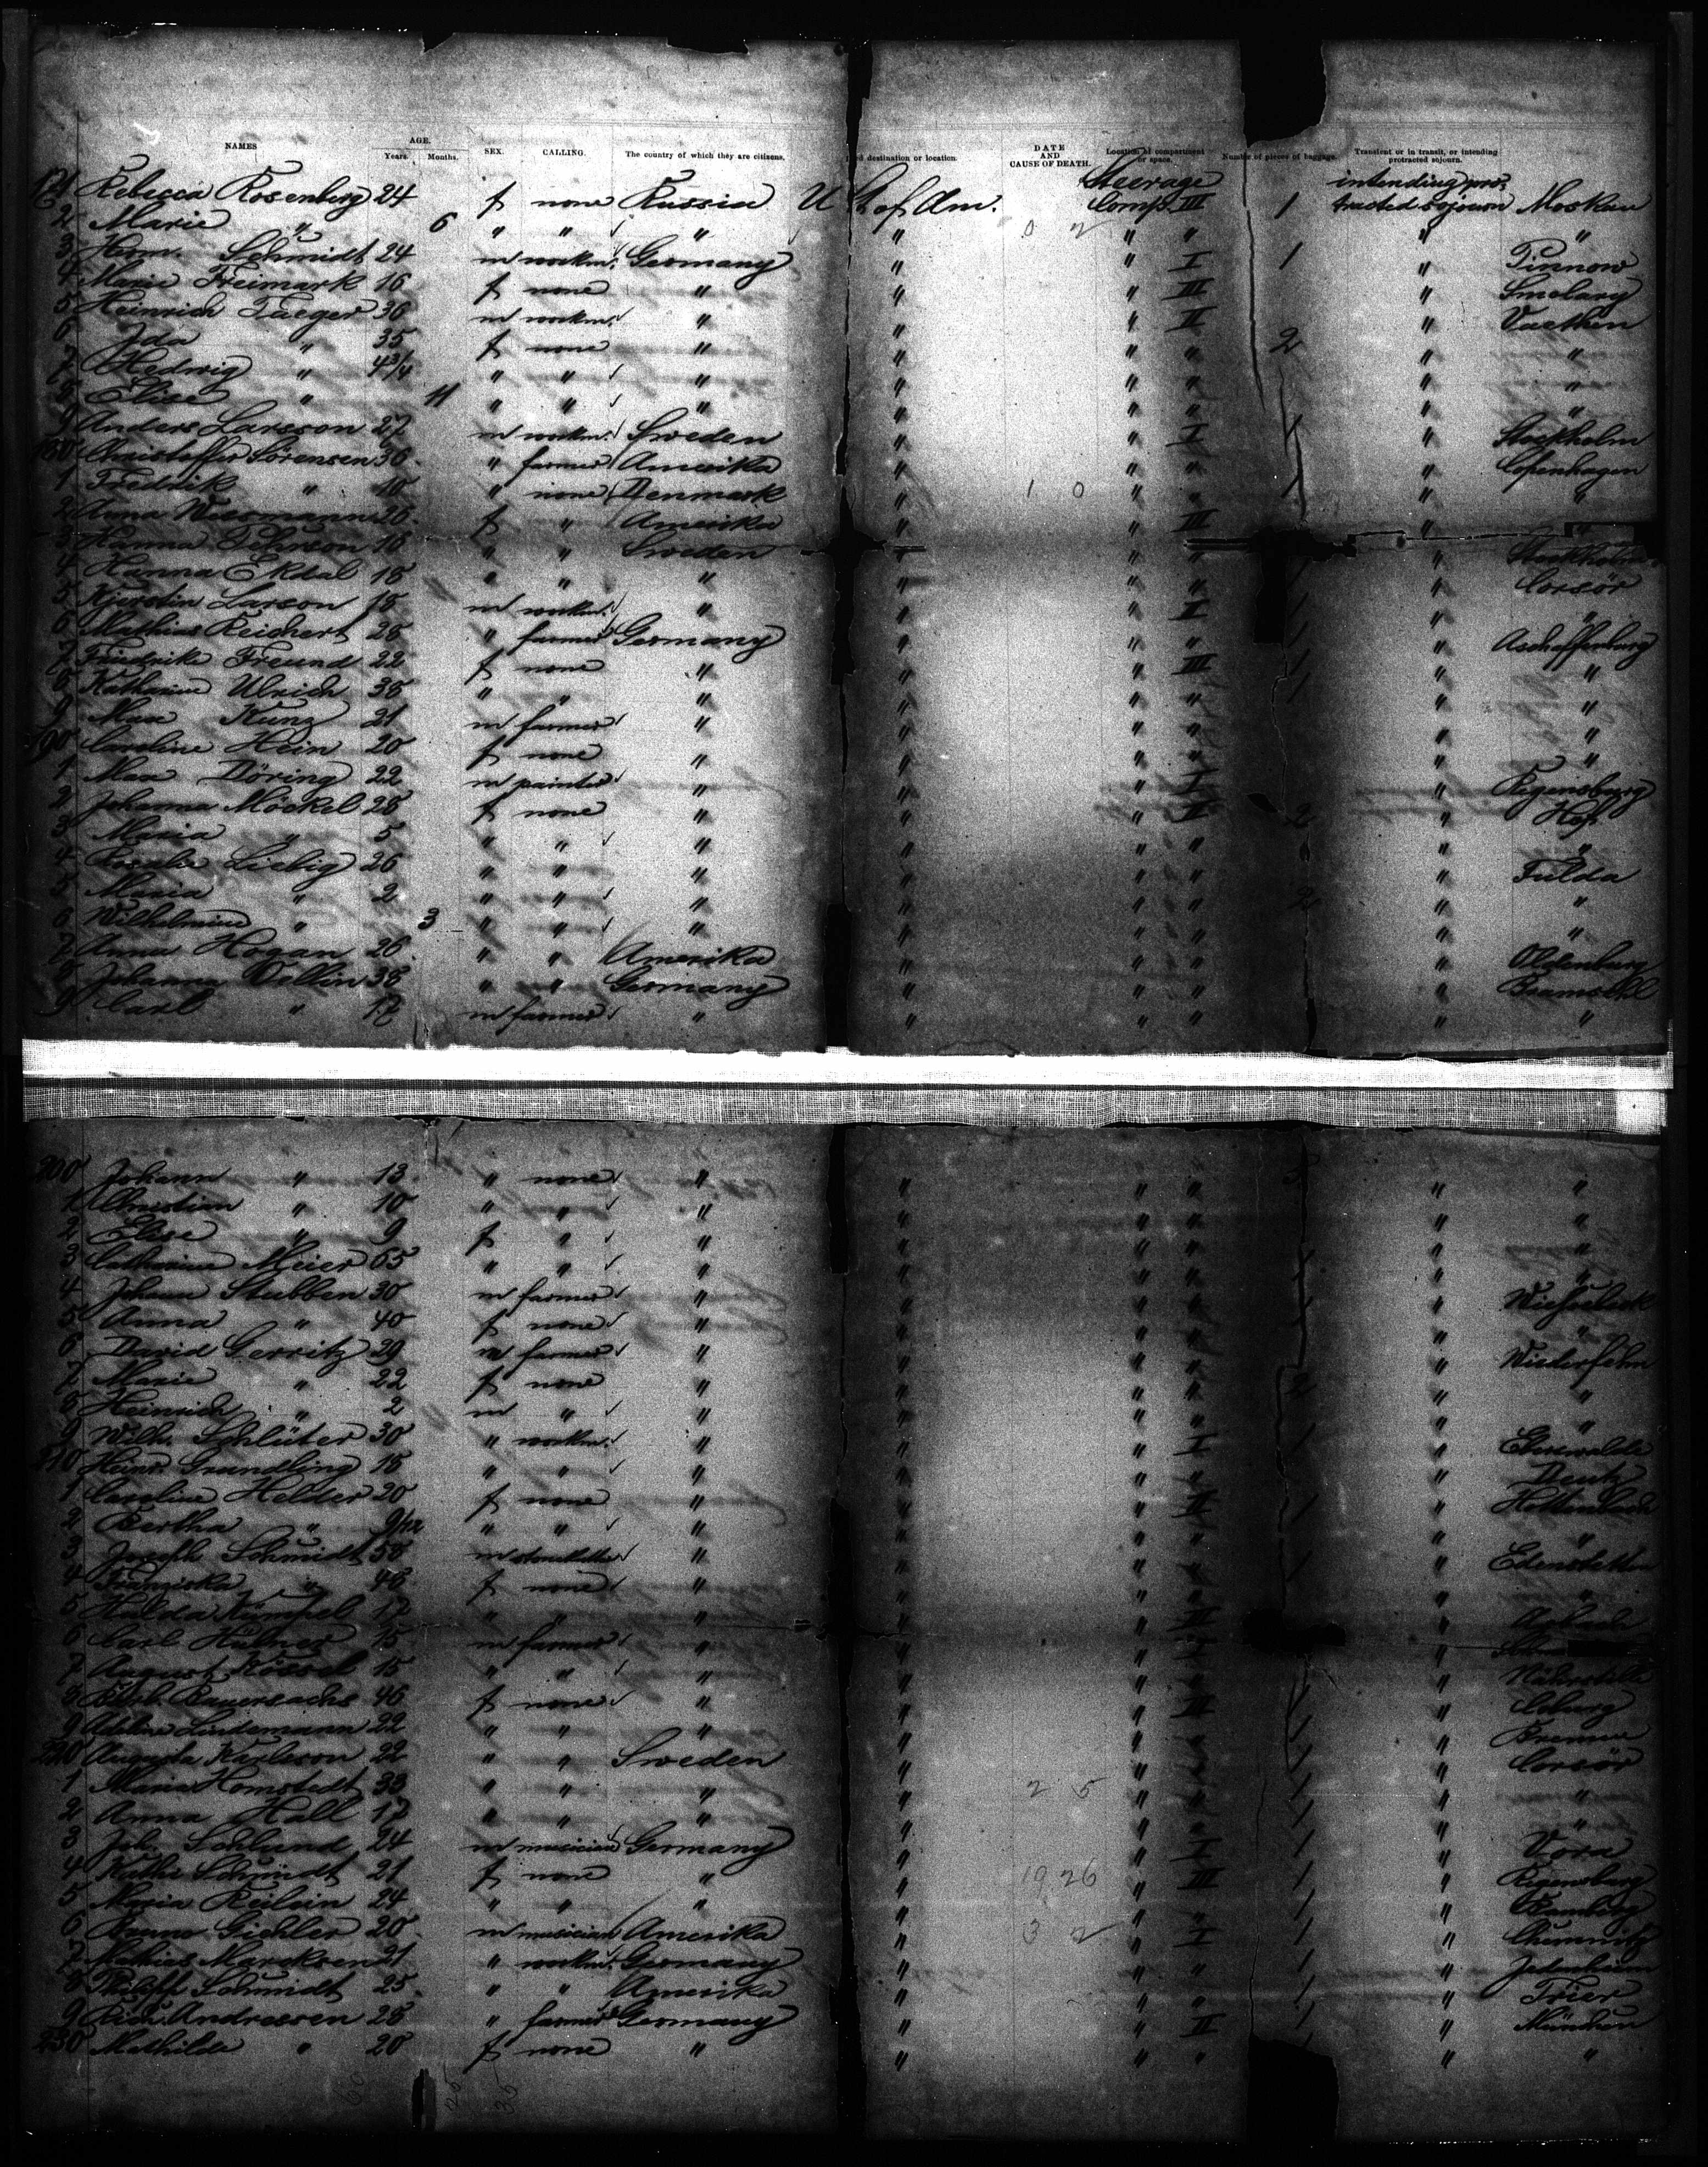 NAMES AGE. Years. Months. SEX. CALLING. The country of which they are citizens. d destination or location. DATE AND CAUSE OF DEATH. Location of compartment or space. Number of pieces of baggage. Transient or in transit, or intending protracted sojourn.
Rebecca Rosenberg 24 f none Russia U S of Am. Steerage Comp. III 1 intending protracted sojourn Moskau
2 Marie " 6 " " " " 0 2 " " " "
3 Herm. Schmidt 24 m workm. Germany " " I 1 " Pinnow
4 Marie Freimark 16 f none " " " III " Smolary
5 Heinrich Jaeger 36 m workm. " " " II " Vaethen
6 Ida " 35 f none " " " " 2 " "
7 Hedwig " 4 3/4 " " " " " " " "
8 Elise " 11 " " " " " " " "
9 Anders Larsson 27 m workm. Sweden " " I 1 " Stockholm
Christoffer Sorensen 36 " farmer Amerika " " " " Copenhagen
1 Fredrik " 10 " none Denmark " 1 0 " " 1 " "
2 Anna 26 f " Amerika " " III "
3 Hanna 18 " " Sweden "
4 Hanna Ekdal 18 " " " " " " " Corsör
5 Kjerstin Larson 18 m workm. " " " I 1 " "
6 Mathias Reichert 28 " farmer Germany " " " 1 " Aschaffenburg
7 Friedrike Freund 22 f none " " " III 1 " "
8 Katharine Ulrich 38 " " " " " " 1 " "
9 Max Kunz 21 m farmer " " " " "
190 Caroline Hein 20 f none " " " " "
1 Max Döring 22 m painter " " " I " Regensburg
2 Johanna Möckel 28 f none " " " II 2 " Hof
3 Maria " 5 " " " " " " " "
4 Rosalie Liebig 26 " " " " " " " Fulda
5 Maria " 2 " " " " " " 2 " "
6 Wilhelmine " 3 " " " " " " " "
7 Anna Hogan 26 " " Amerika " " " " Oldenburg
8 Johanna Wellin 38 " " Germany " " " "
9 Carl " 17 m farmer " " " " " "
200 Johann " 13 " none " " " " 3 " "
1 Christian " 10 " " " " " " " "
2 Elise " 9 f " " " " " " "
3 Catharina Meier 65 " " " " " " 1 " "
4 Johann Stubben 30 m farmer " " " " 1 "
5 Anna " 40 f none " " " " 1 " "
6 David Gerritz 29 m farmer " " " " " Wiederfehn
7 Marie " 22 f none " " " " 2 " "
8 Heinrich " 2 m " " " " " " "
9 Wilh. Schlüter 30 " workm. " " " I 1 "
210 Heinr. Grundling 15 " " " " " " " Deutz
1 Caroline Helder 20 f none " " " II 1 "
2 Bertha " 9/12 " " " " " " " "
3 Joseph Schmidt 58 m " " " " 1 " Edenstetten
4 Franziska " 46 f none " " " " " "
5 Hulda Kümpel 17 " " " " " II "
6 Carl Hübner 15 m farmer " " " I "
7 August Kössel 15 " " " " " " 1 "
8 Barb. Bauersachs 46 f none " " " II 1 " Coburg
9 Adeline Lindemann 22 " " " " " " 1 " Bremen
220 Augusta Karlsson 22 " " Sweden " " " 1 " Corsör
1 Maria Homstedt 33 " " " " 2 5 " " 1 " "
2 Anna Hall 17 " " " " " " 1 " "
3 Joh. 24 m musician Germany " " I 1 "
4 Käthe Schmidt 21 f none " " 19 26 " III 1 " Regensburg
5 Maria 24 " " " " " " 1 " Bamberg
6 Bruno Gichler 20 m musician Amerika " 3 2 " I 1 " Chemnitz
7 Mathias Marcksen 21 " workm. Germany " " " 1 "
8 Philipp Schmidt 25 " " Amerika " " " 1 " Trier
9 Rich. Andresen 28 " farmer Germany " " II 1 " München
230 Mathilde " 20 f none " " " " " "